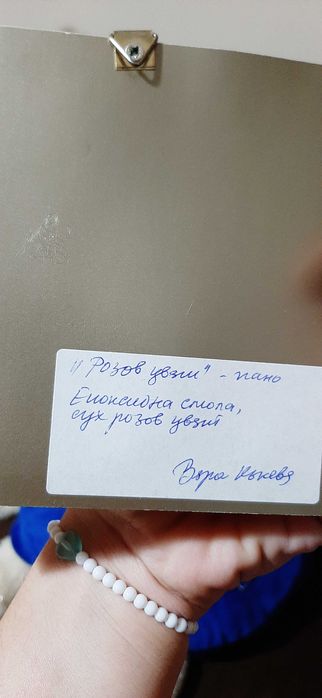 "Розов цвят" - пано
Епоксидна смола,
сух розов цвят
Вяра